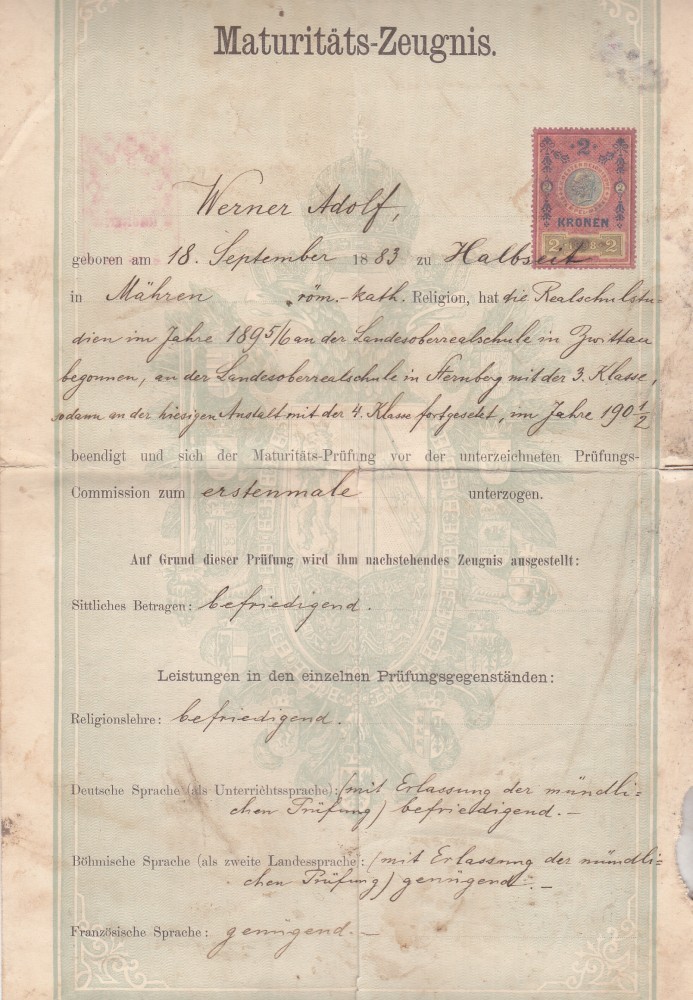 Maturitäts-Zeugnis.
2
2 2
KRONEN
2 1898 2
Werner Adolf,
geboren am 18. September 1883 zu Halbseit
in Mähren röm.-kath. Religion, hat die Realschulstu-
dien im Jahre 1895/6 an der Landesoberrealschule in Zwittau
begonnen, an der Landesoberrealschule in Sternberg mit der 3. Klasse,
sodann an der hiesigen Anstalt mit der 4. Klasse fortgesetzt, im Jahre 190 1/2
beendigt und sich der Maturitäts-Prüfung vor der unterzeichneten Prüfungs-
Commission zum erstenmale unterzogen.
Auf Grund dieser Prüfung wird ihm nachstehendes Zeugnis ausgestellt:
Sittliches Betragen: befriedigend.
Leistungen in den einzelnen Prüfungsgegenständen:
Religionslehre: befriedigend.
Deutsche Sprache (als Unterrichtssprache): (mit Erlassung der mündli-
chen Prüfung) befriedigend. —
Böhmische Sprache (als zweite Landessprache): (mit Erlassung der mündli-
chen Prüfung) genügend. —
Französische Sprache: genügend. —